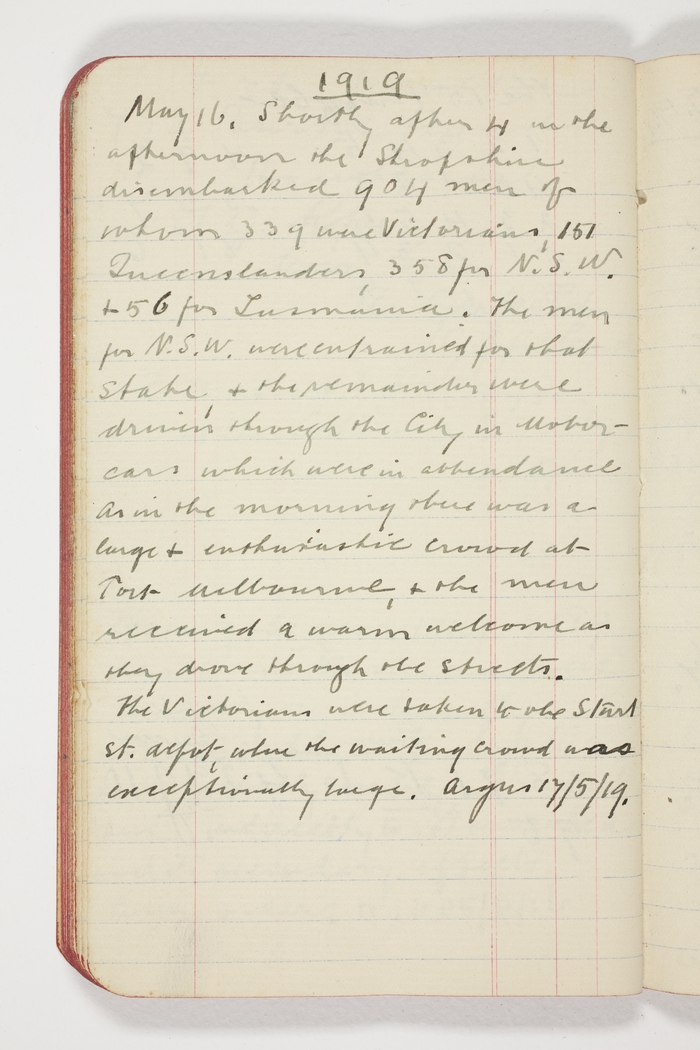 1919
May 16. Shortly after 4 in the
afternoon the Shropshire
disembarked 904 men of
whom 339 were Victorians, 151
Queenslanders, 358 for N.S.W.
+ 56 for Tasmania. The men
for N.S.W. were entrained for that
State, + the remainder were
driven through the City in Motor-
cars which were in attendance
As in the morning there was a
large + enthusiastic crowd at
Port Melbourne, + the men
received a warm welcome as
they drove through the streets.
The Victorians were taken to the Sturt
st. depot, where the waiting crowd was
exceptionally large. Argus 17/5/19.